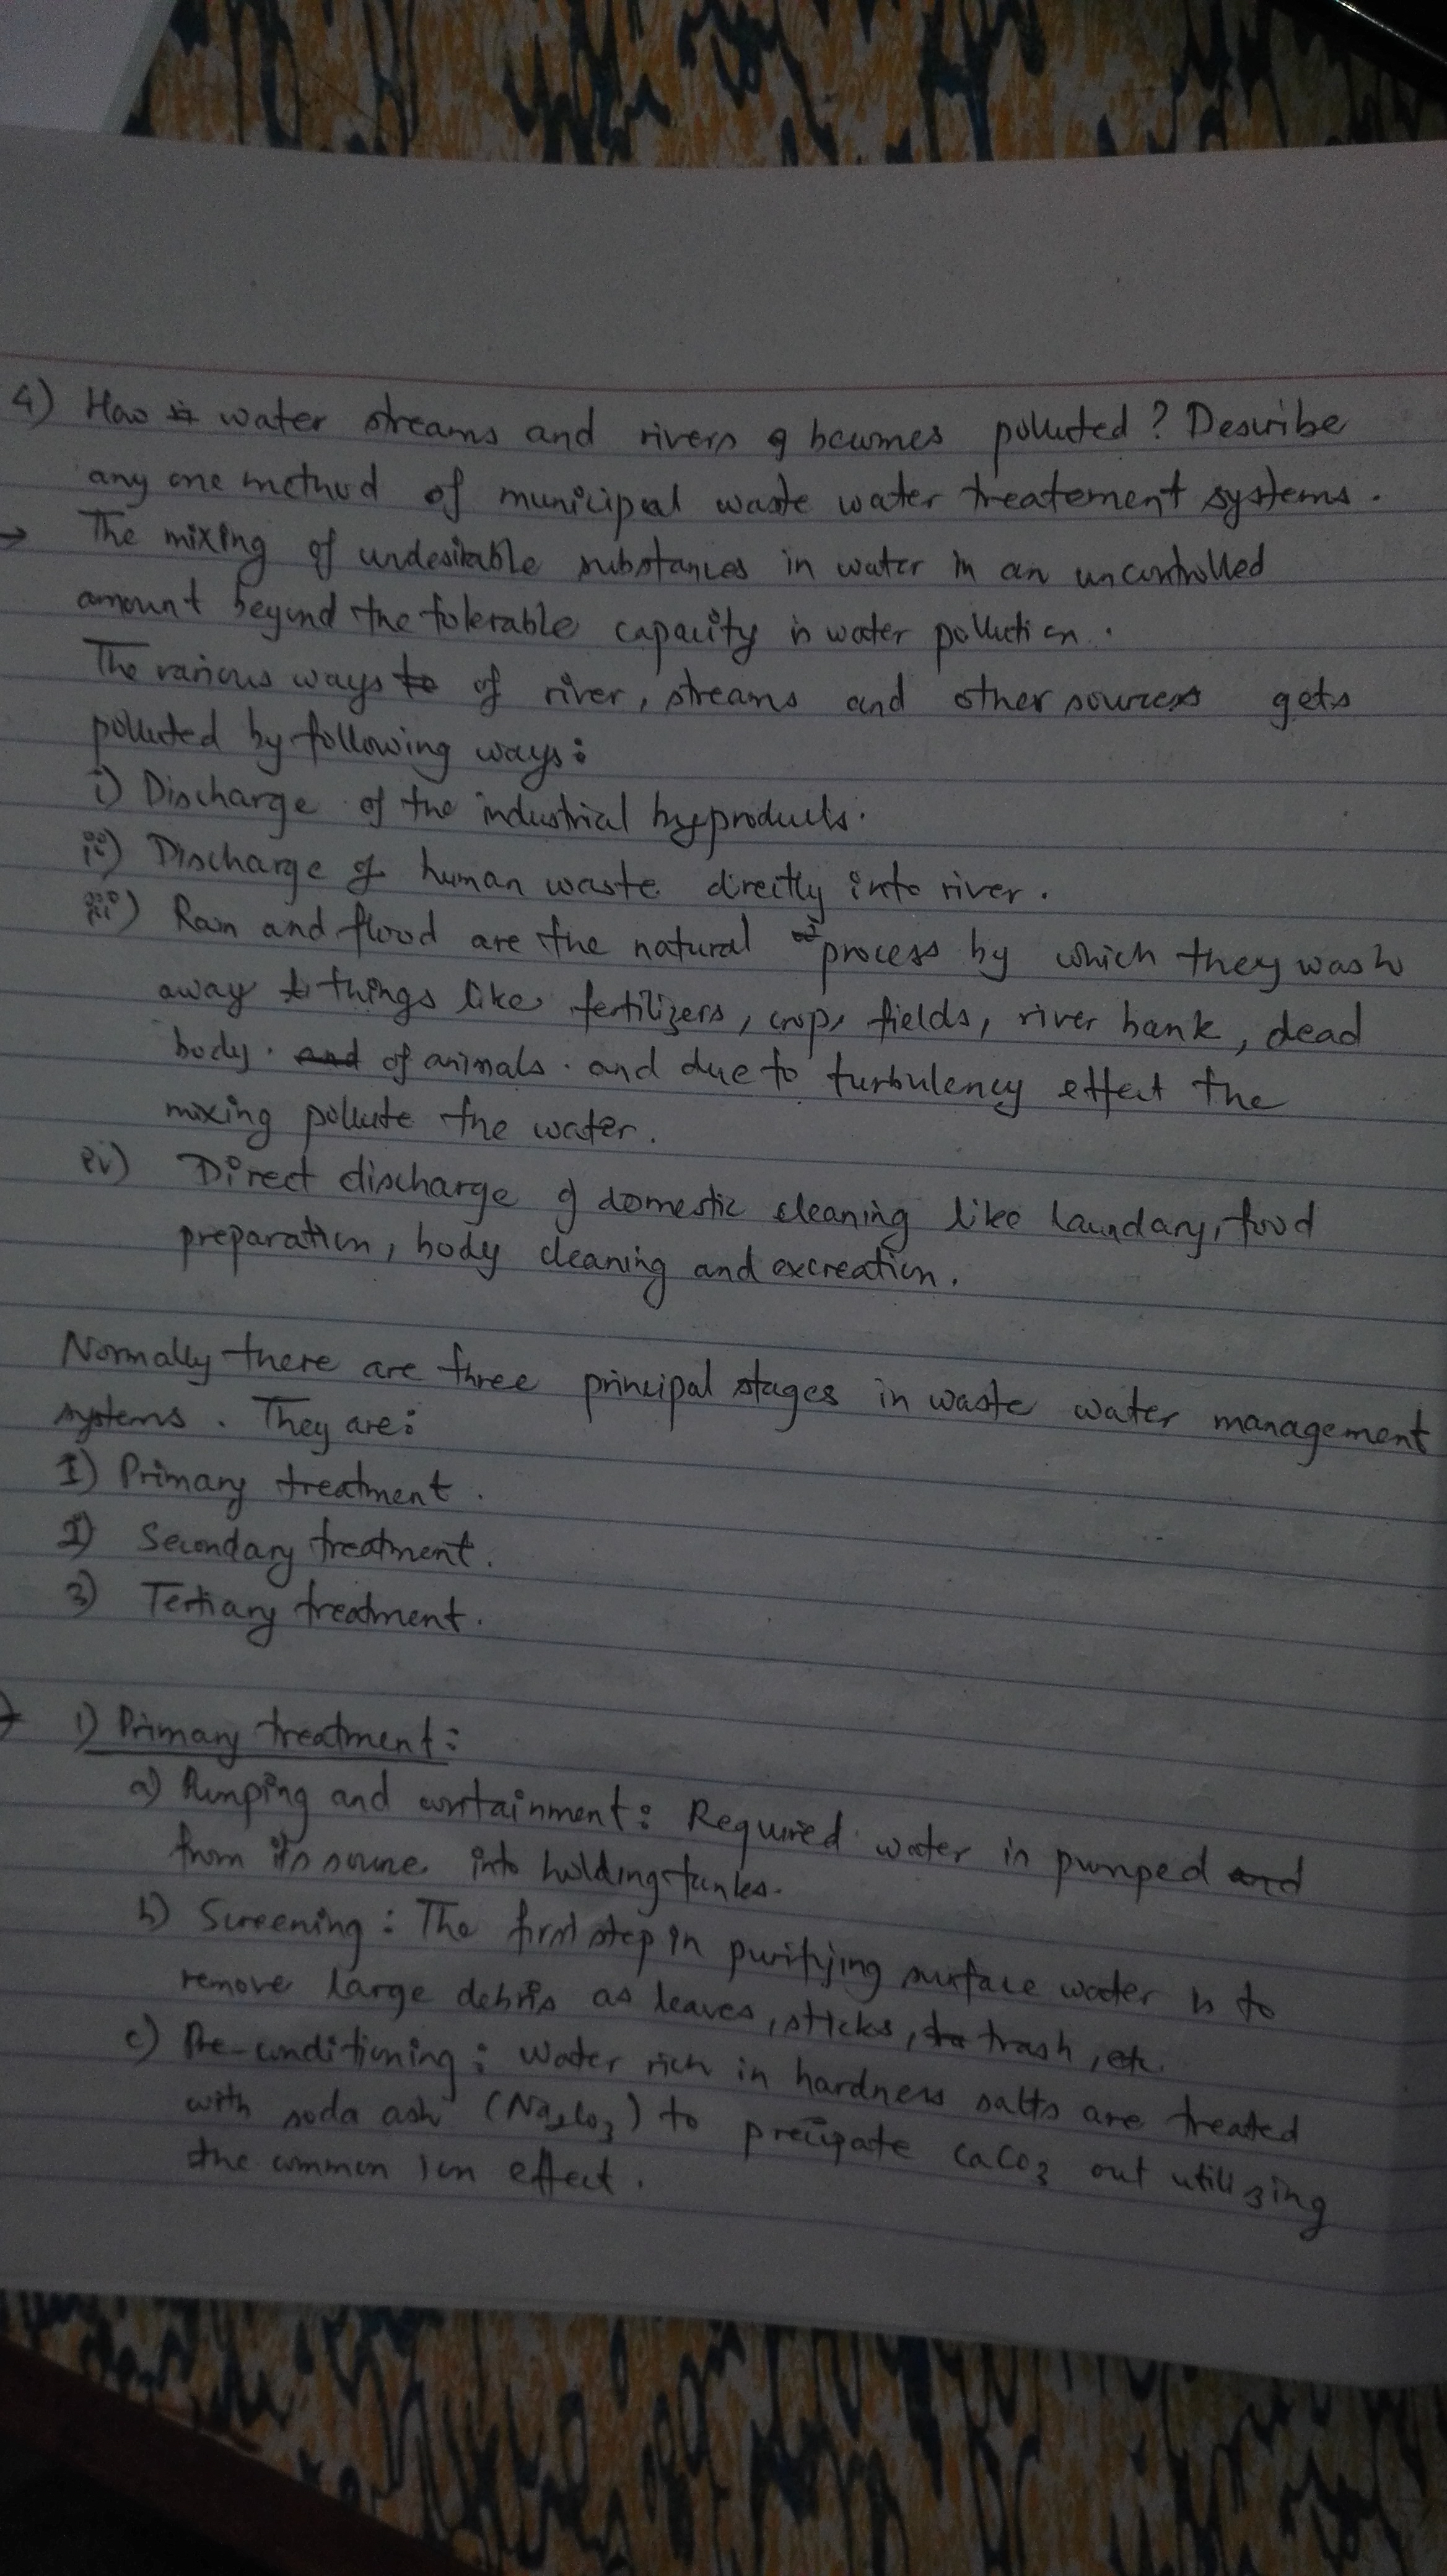 4) How is water streams and rivers g becumes polluted? Describe
any one method of municipal waste water treatement systems.
→ The mixing of undesirable substances in water in an uncontrolled
amount beyond the tolerable capacity is water pollution.
The various ways to of river, streams and other sources gets
polluted by following ways:
i) Discharge of the industrial byproducts.
ii) Discharge of human waste directly into river.
iii) Rain and flood are the natural process by which they wash
away t things like fertilizers, crops, fields, river bank, dead
body. and of animals. and due to turbulency effect the
mixing pollute the water.
iv) Direct discharge of domestic cleaning like laundary, food
preparation, body cleaning and excreation.
Normally there are three principal stages in waste water management
systems. They are:
1) Primary treatment.
2) Secondary treatment.
3) Tertiary treatment.
→ 1) Primary treatment:
a) Pumping and containment: Required water is pumped and
from its source into holding tanks.
b) Screening: The first step in purifying surface water is to
remove large debris as leaves, sticks, tra trash, etc.
c) Pre-conditioning: Water rich in hardness salts are treated
with soda ash (Na2CO3) to precipate CaCO3 out utilizing
the common ion effect.